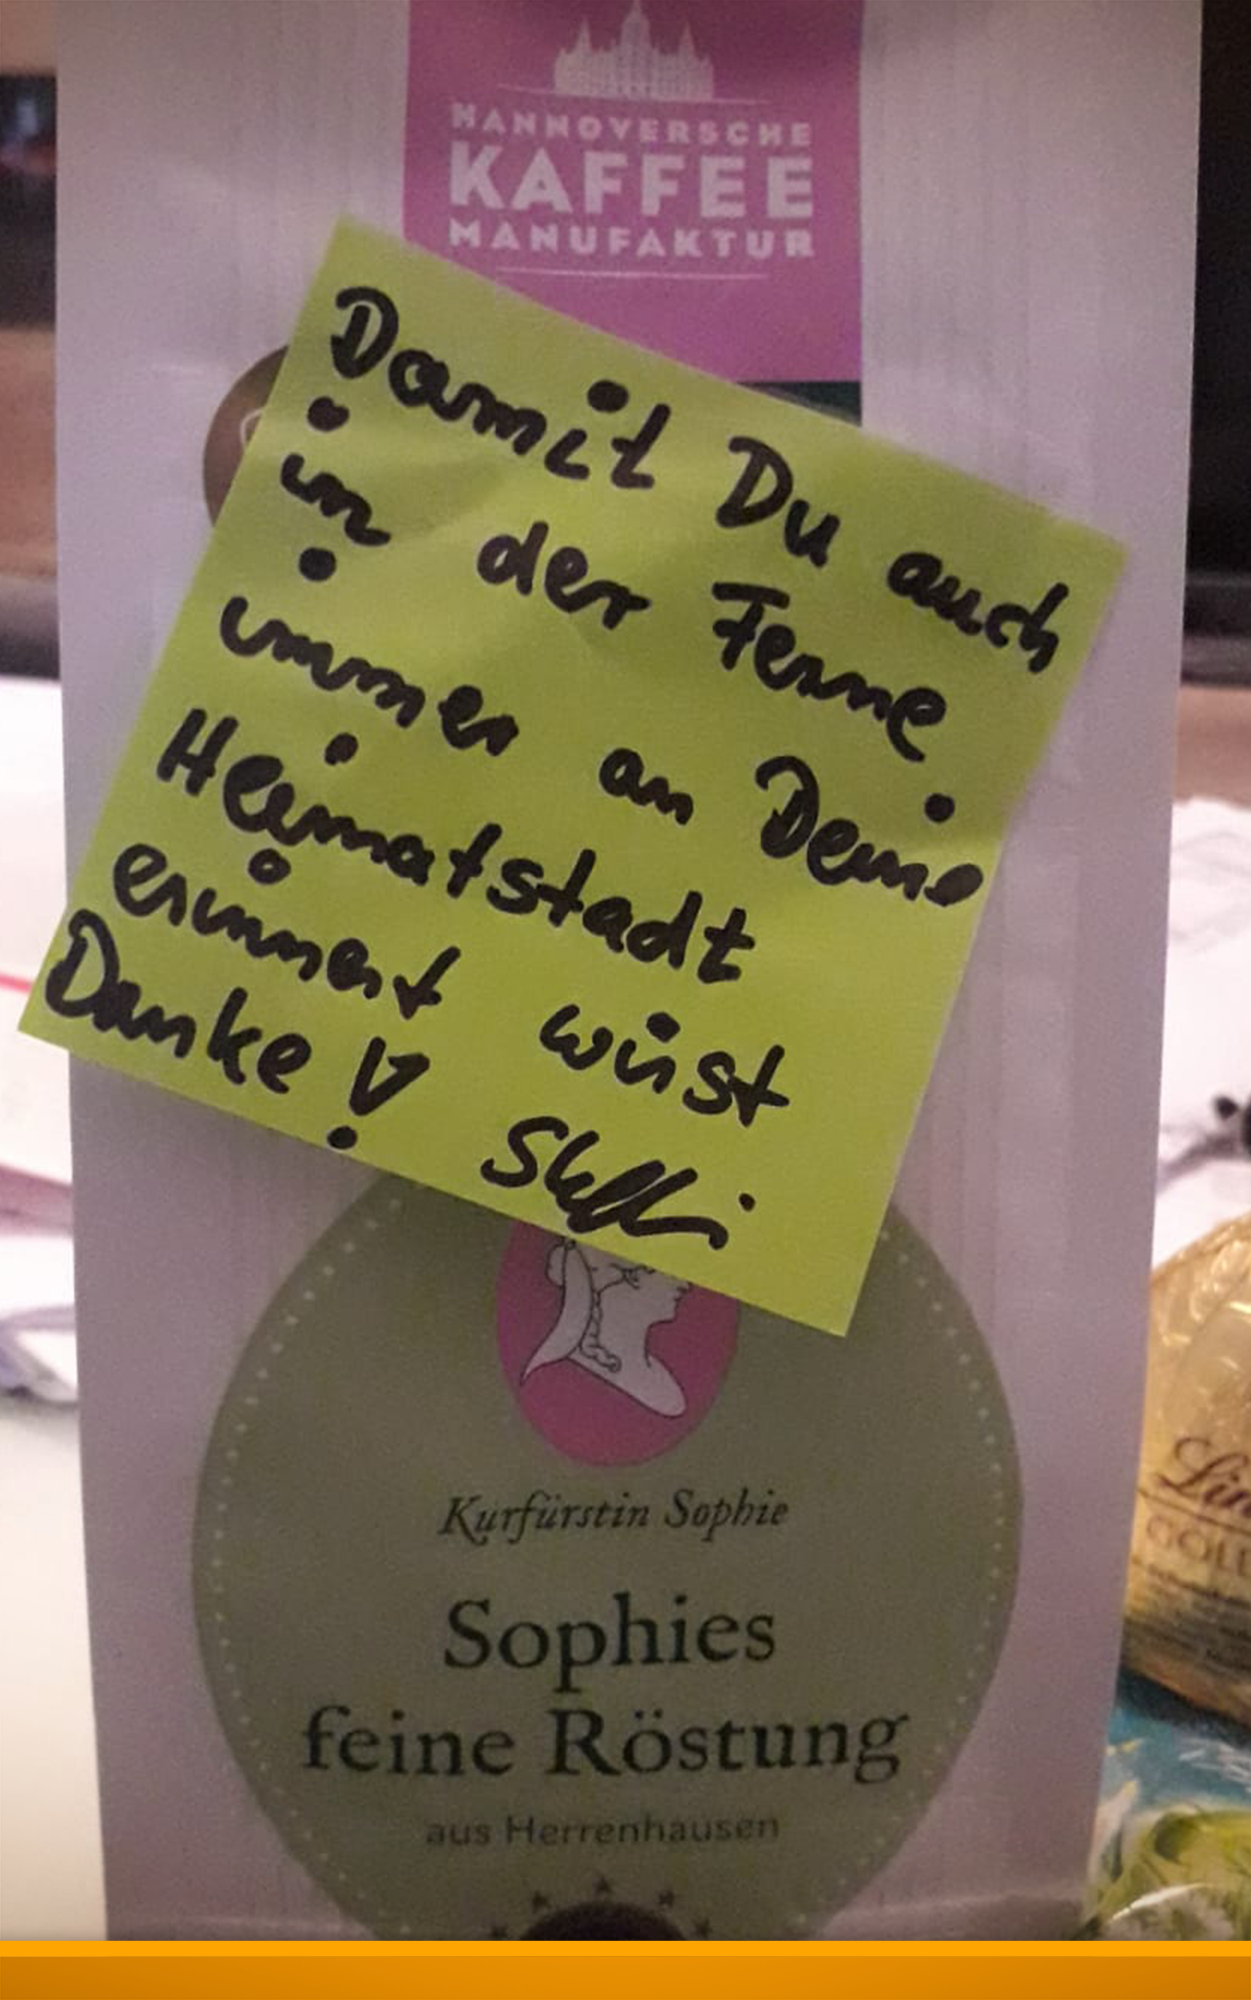 HANNOVERSCHE
KAFFEE
MANUFAKTUR
Damit Du auch
in der Ferne
immer an Deine
Heimatstadt
erinnert wirst
Danke!
Kurfürstin Sophie
Sophies
feine Röstung
aus Herrenhausen
Lin
GOL